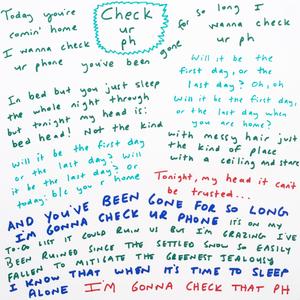 Today you're
comin' home
I wanna check
ur phone you've been gone
Check
ur
ph
for so long I
wanna check
ur
ph
In bed but you just sleep
the whole night through
but tonight my head is:
bed head! Not the kind
Will it be the first
day, or the
last day? Oh, oh
Will it be the first day,
or the last day when
you are home?
with messy hair just
the kind of place
with a ceiling and stars
Will it be the first day
or the last day? Will
it be the last day? Or
today, b/c you r home
Tonight, my head it can't
be trusted...
AND YOU'VE BEEN GONE FOR SO LONG
I'M GONNA CHECK UR PHONE IT'S ON MY
TO-DO LIST IT COULD RUIN US BUT I'M GRAZING I'VE
BEEN RUINED SINCE THE SETTLED SNOW SO EASILY
FALLEN TO MITIGATE THE GREENEST JEALOUSY
I KNOW THAT WHEN IT'S TIME TO SLEEP
ALONE I'M GONNA CHECK THAT PH